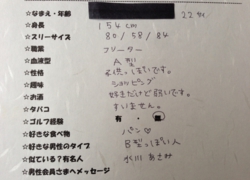 ☆なまえ・年齢 22才
☆身長 154cm
☆スリーサイズ 80/58/84
☆職業 フリーター
☆血液型 A型
☆性格 子供っぽいです。
☆趣味 ショッピング
☆お酒 好きだけど弱いです。
☆タバコ すいません。
☆ゴルフ経験 有・無
☆好きな食べ物 パン♡
☆好きな男性のタイプ Bぽっぽい人
☆似ている?有名人 水川あさみ
☆男性会員さまへメッセージ